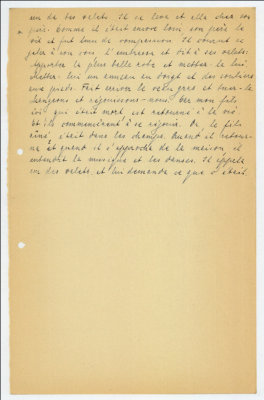 un de tes valets. Il se leva et alla chez son
père. Comme il était encore loin son père le
vit et fut ému de compassion. Il courut se
jeter à son cou l'embrassa et dit à ses valets:
Apportez la plus belle robe et mettez-la lui.
Mettez-lui un anneau au doigt et des souliers
aux pieds. Fait le veau gras et tuez-le
mangeons et réjouissons-nous. Car mon fils
que était mort est retourné à la vie
Et ils commencèrent à se réjouir. Or, le fils
aîné était dans les champs. Quand il retour-
na et quand il s'approcha de la maison, il
entendit la musique et les danses. Il appela
un des valets, et lui demanda ce que c'était.